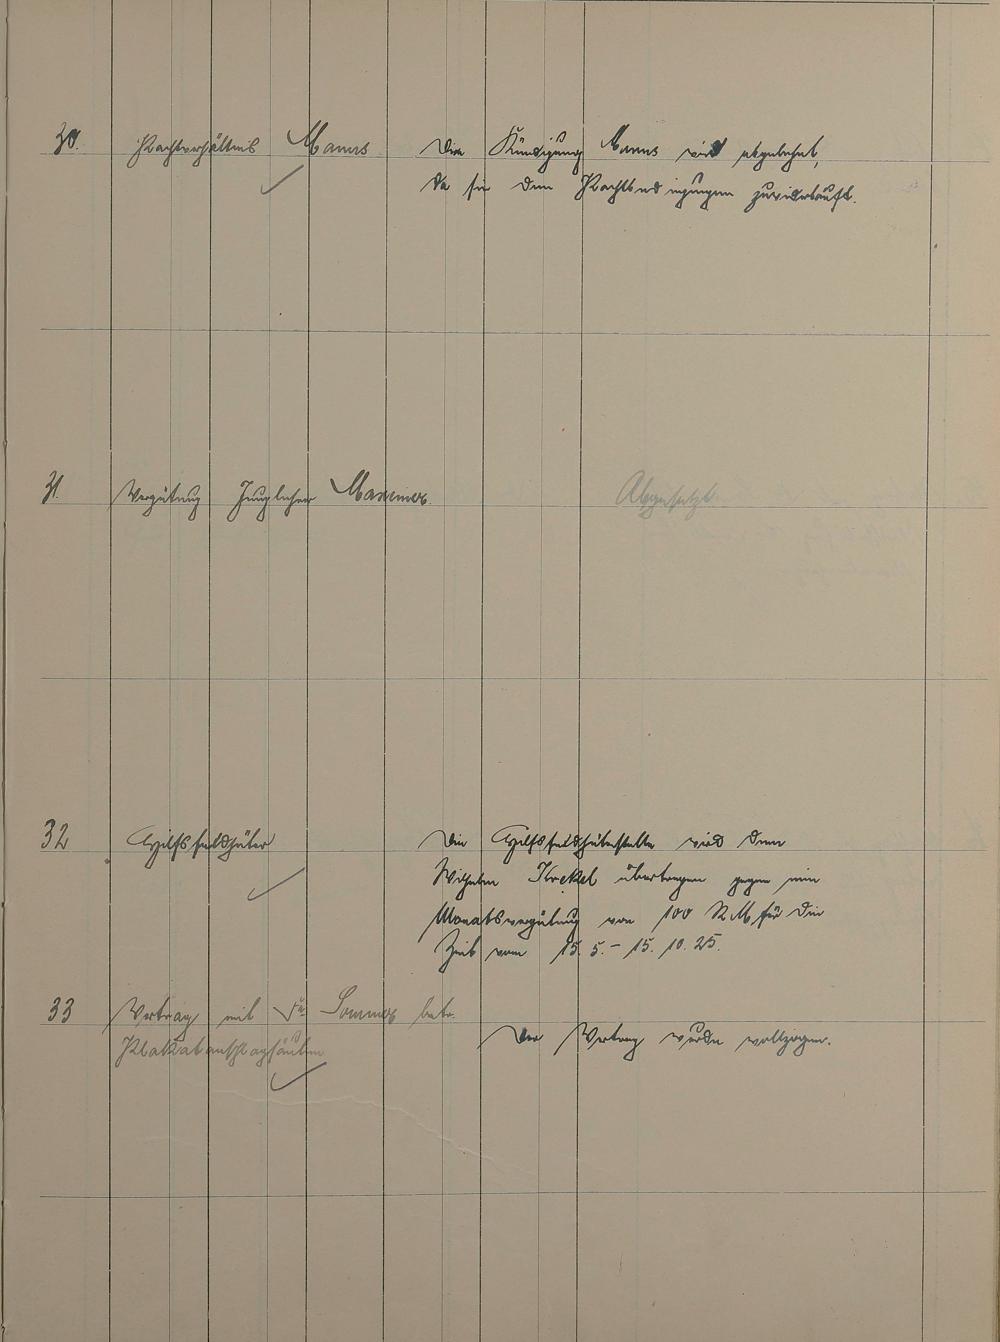 30. Pachtverhältnis Manns
Die Kündigung Manns wird abgelehnt,
da sie den Pachtbedingungen zuwiderläuft.
31. Vergütung Junglehrer
Abgesetzt.
32 Hilfsfeldhüter
Die Hilfsfeldhüterstelle wird dem
Wilhelm Krekel übertragen gegen eine
Monatsvergütung von 100 RM für die
Zeit vom 15. 5. - 15. 10. 25.
33 Vertrag mit Fa Sommer betr.
Plakatanschlagsäulen
Der Vertrag wurde vollzogen.